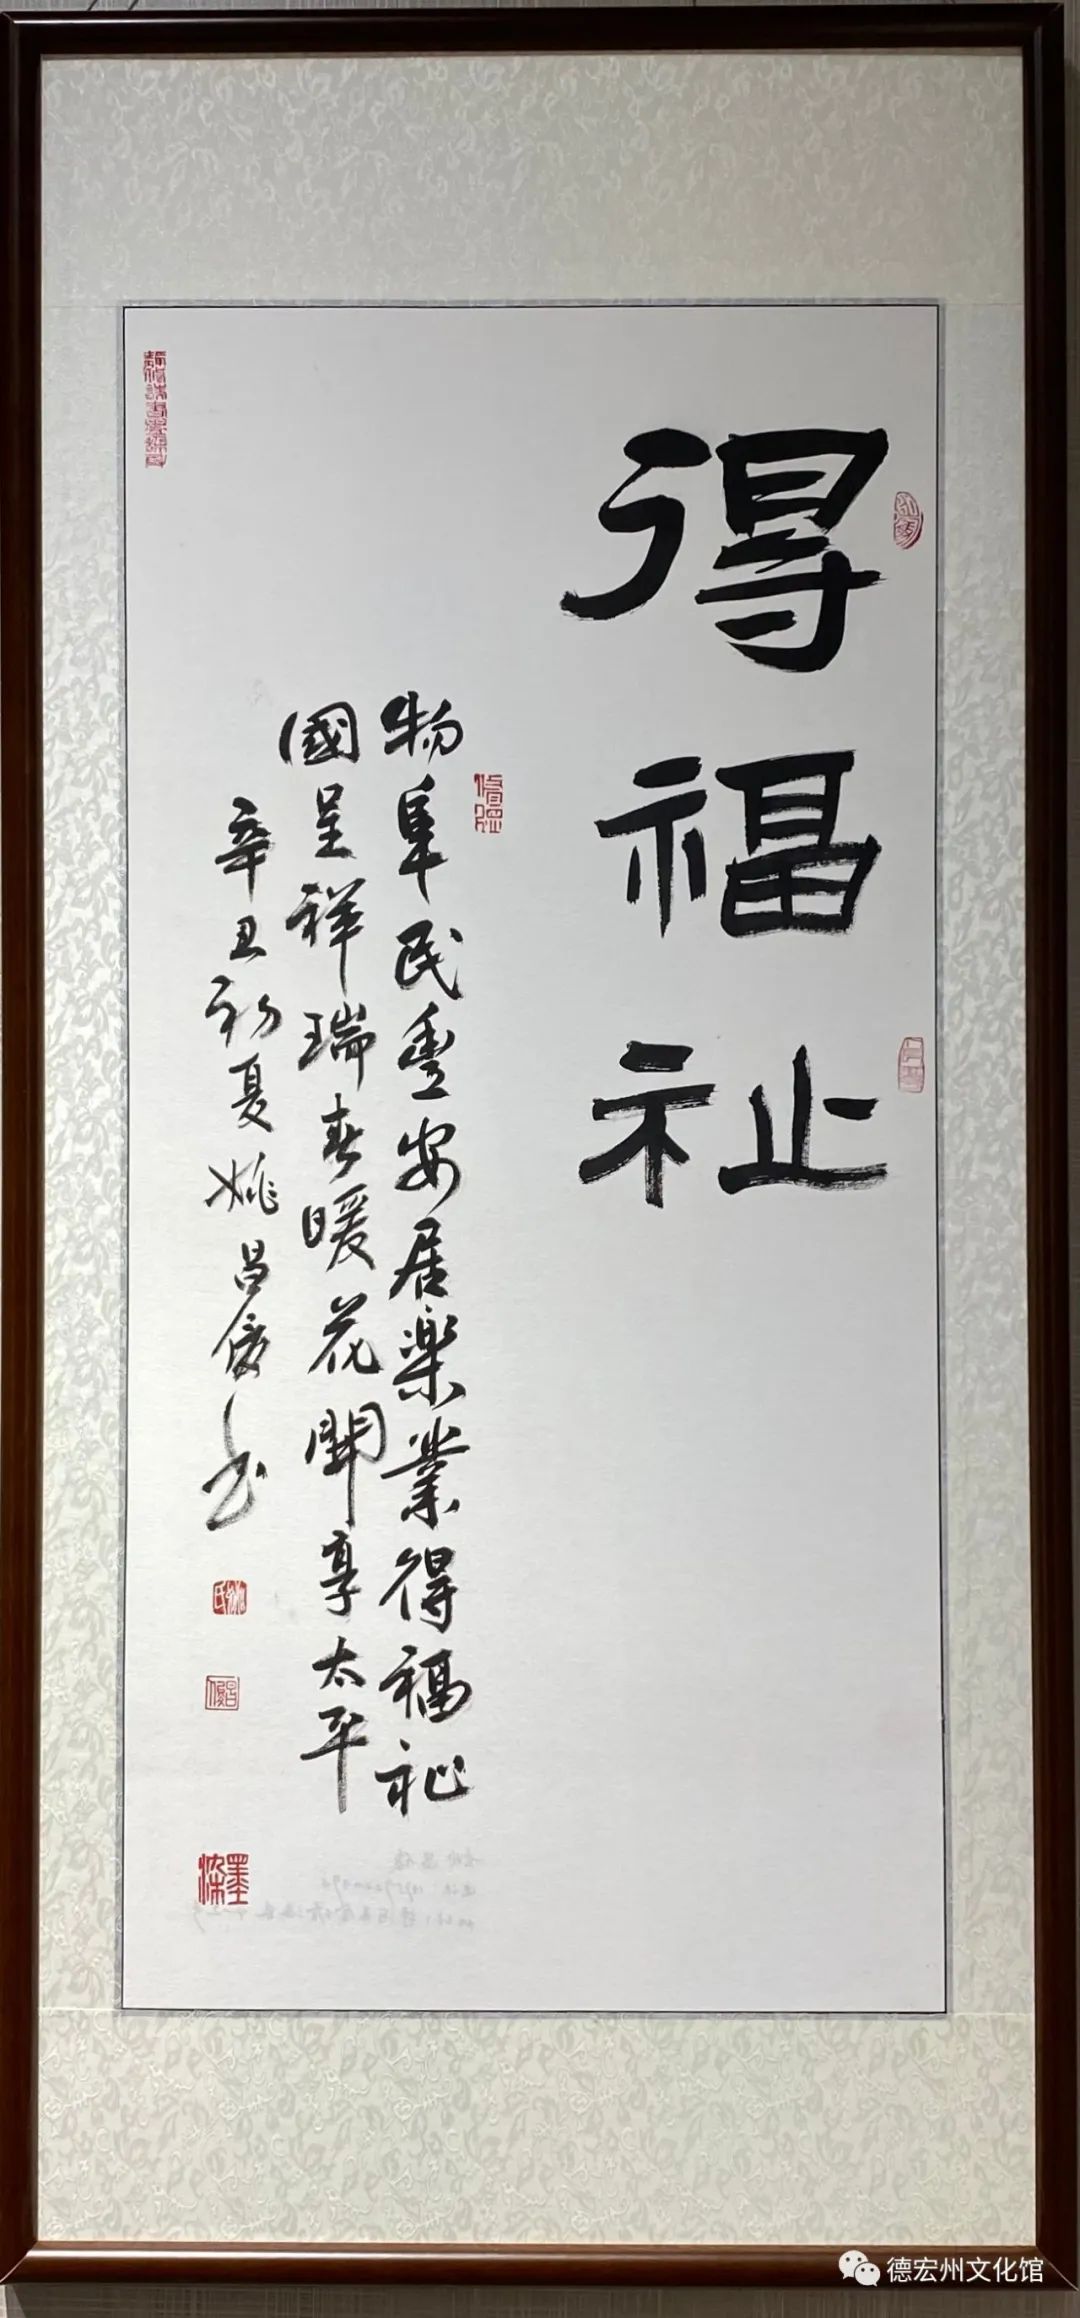 得福祉
物阜民豊安居楽業得福祉
國呈祥瑞春暖花開享太平
辛丑初夏姚昌俊书
德宏州文化馆